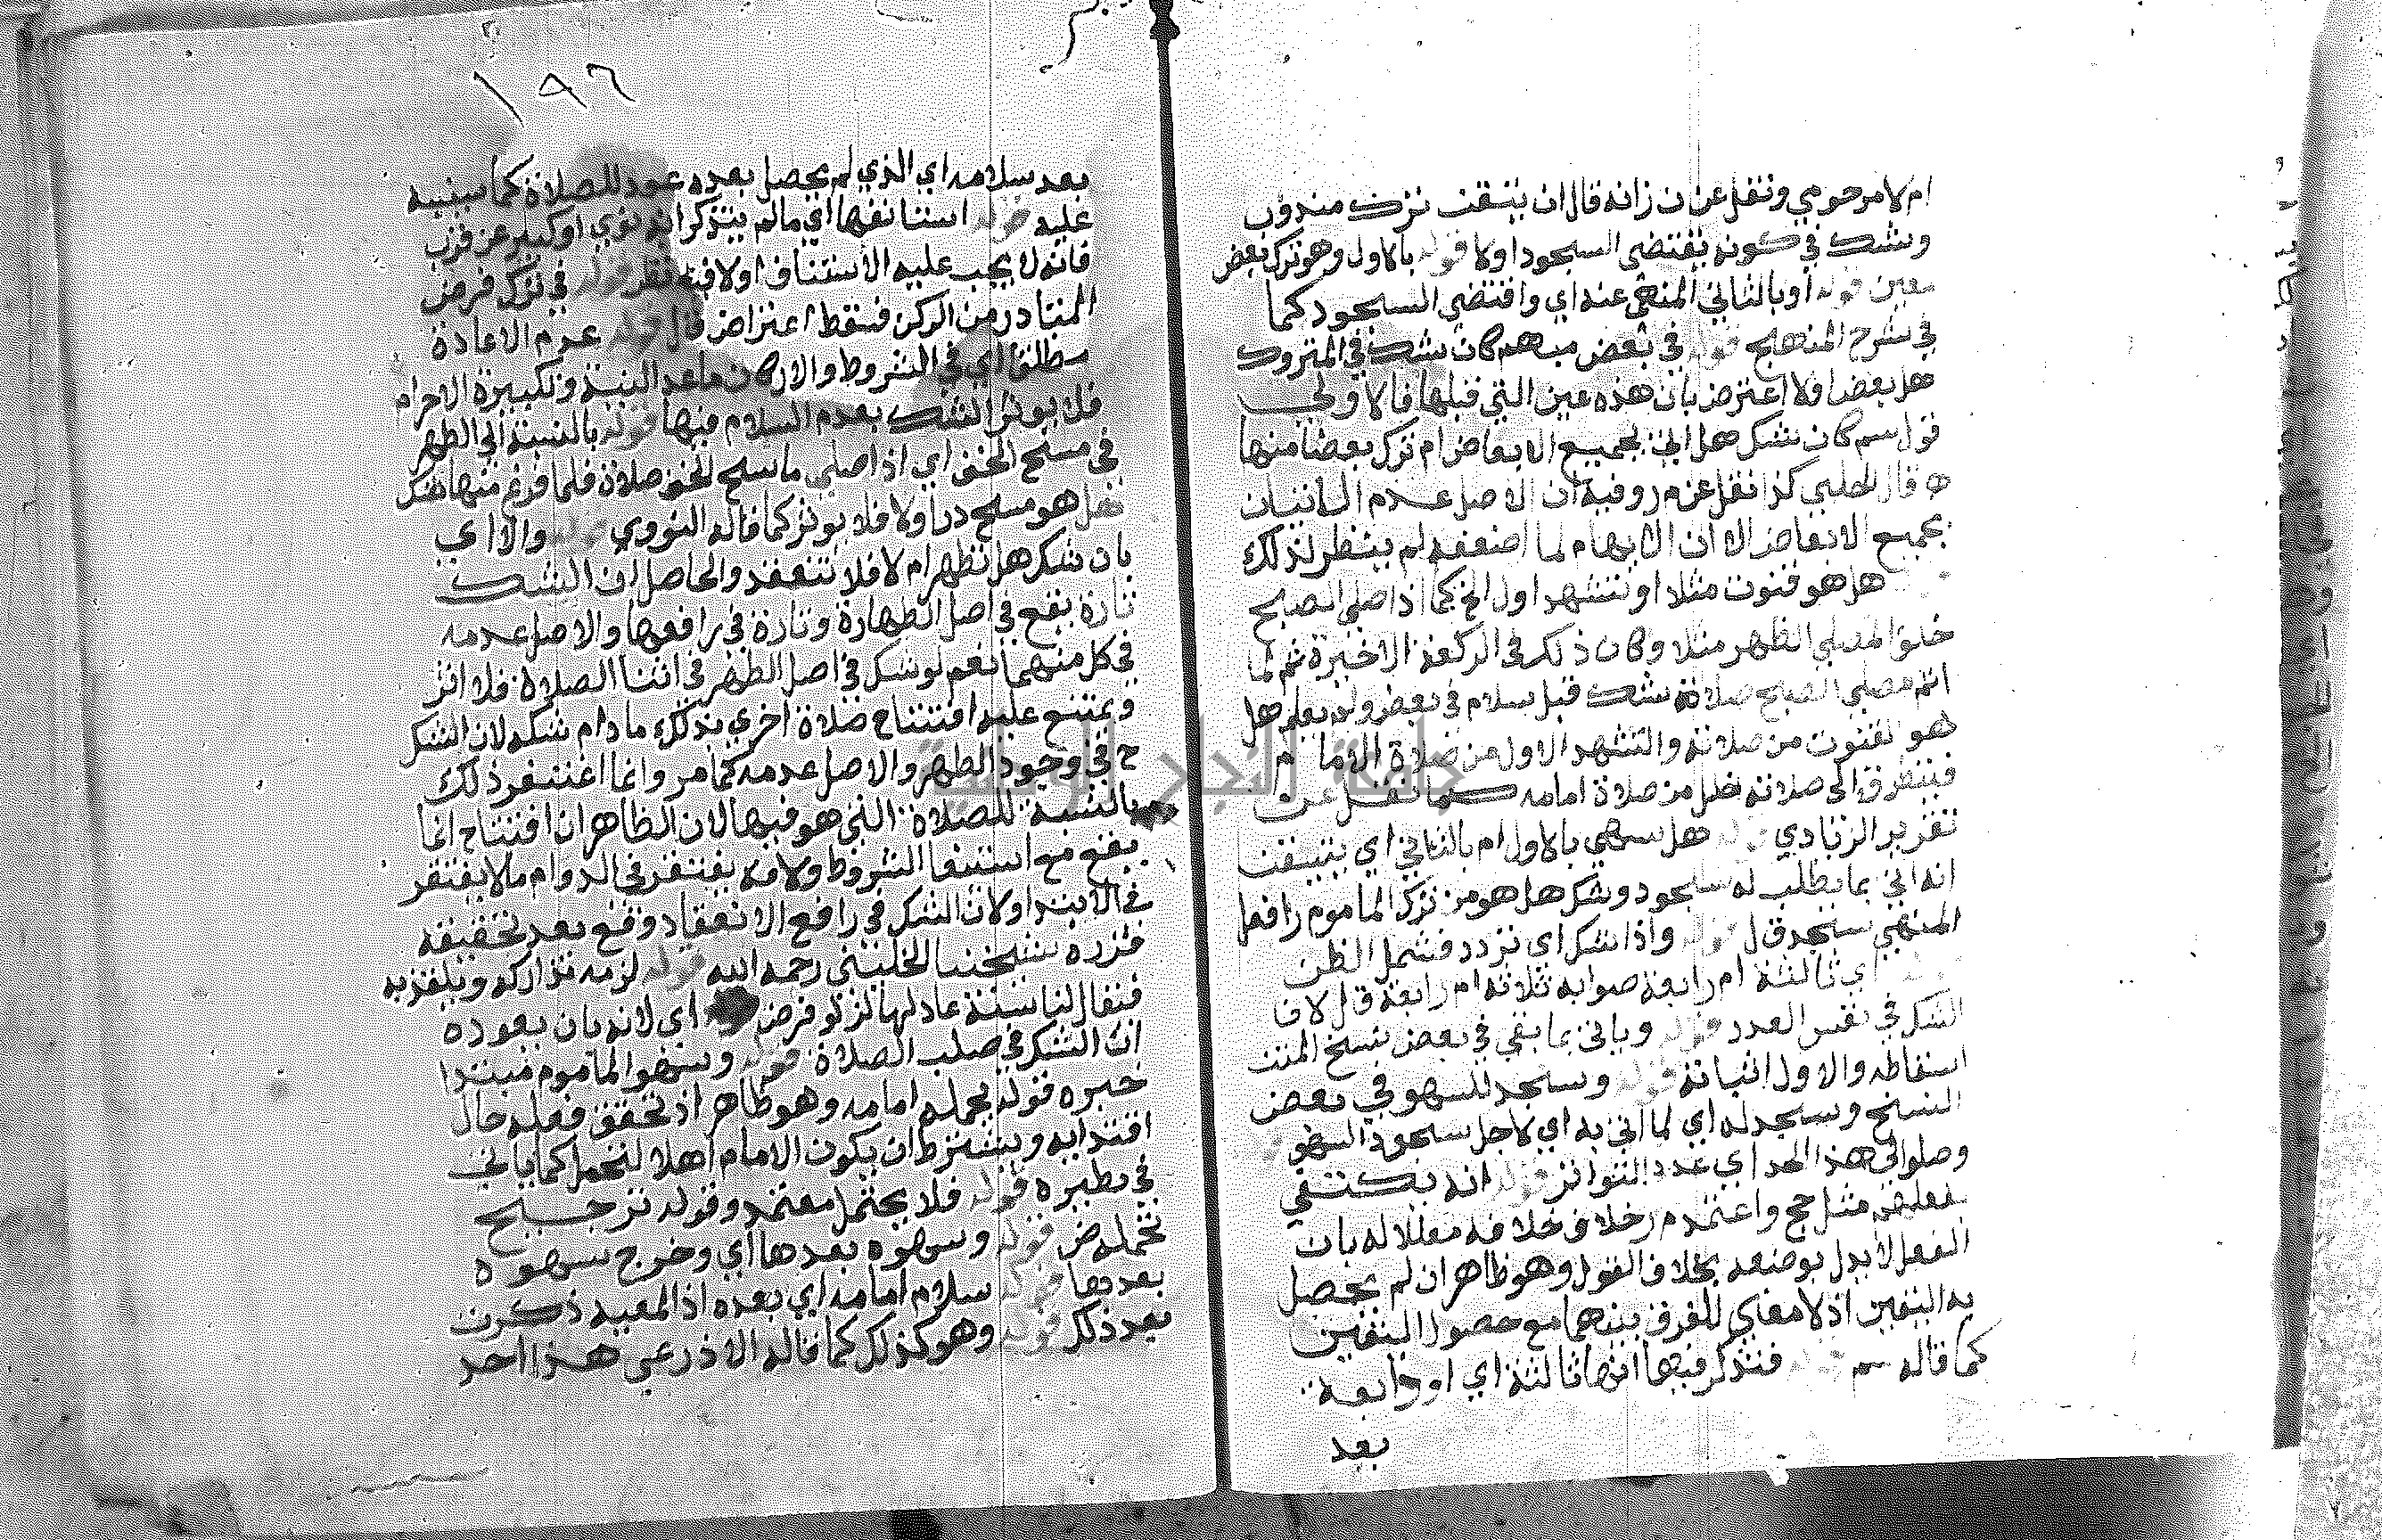 ام لامر حومي ونقل عن ن زانه قال ان تيقن ترك مندوب
وشك في كونه يقتضي السجود اولا قوله بالاول وهو ترك بعض
معين قوله او بالثاني المنهي عنه اي واقتضى السجود كما
في شرح المنهج قوله في بعض مبهم كان شك في المتروك
هل بعض اولا اعترض بان هذه عين التي قبلها فالاولى
قول سم كان شك هل اتى بجميع الابعاض ام ترك بعضا منها
قال الحلبي كذا نقل عن م ر وفيه ان الاصل عدم الاتيان
بجميع الابعاض الا ان الابهام لما اضعفه لم ينظر لذلك
هل هو قنوت مثلا او تشهد اول الخ كما اذا صلى الصبح
خلف مصلي الظهر مثلا وكان ذلك في الركعة الاخيرة ثم لما
اتم مصلي الصبح صلاته شك قبل سلام في بعض ولم يعلم هل
هو القنوت من صلاته والتشهد الاول من صلاة الامام
فيتطرق الى صلاته خلل من صلاة امامه كما نقل عن
تقرير الزيادي قوله هل سهى بالاول ام بالثاني اي تيقن
انه اتى بما يطلب له سجود وشك هل هو من ترك المأموم را فعل
المنهي سجد ق ل قوله واذا شك اي تردد فشمل الظن
اي ثالثة ام رابعة صوابه ثلاثة ام رابعة ق ل لا فا
الشك في نفس العدد قوله وياتي بما بقي في بعض نسخ المتن
اسقاطه والاول اثباته قوله وسجد للسهو في بعض
النسخ وسجد له اي لما اتى به اي لاجل سجود السهو
وصلوا الى هذا الحد اي عدد التواتر قوله انه يكتفي
بفعلهم مثل حج واعتمد م ر خلاف خلافه معللا له بان
الفعل لا يدل بوضعه بخلاف القول وهو ظاهر ان لم يحصل
به اليقين اذ لا معنى للفرق بينهما مع حصول اليقين
كما قاله سم قوله فتذكر فيها انها ثالثة اي او رابعة
بعد
١٩٦
بعد سلامه اي الذي لم يحصل بعده عود للصلاة كما سينبه
عليه قوله استانفها اي ما لم يتذكر انه نوى او كبر عن قرب
فانه لا يجب عليه الاستئناف اولا قوله في ترك فرض
المتبادر من الركن فسقط اعتراض ق ل قوله عدم الاعادة
مطلقا اي في الشروط والاركان ما عدا النية وتكبيرة الاحرام
فلا يوثر الشك بعدم السلام فيها قوله بالنسبة الى الطهر
في مسح الخف اي اذا صلى ماسح الخف صلاة فلما فرغ منها شك
هل هو مسح در اولا فلا يوثر كما قاله النووي قوله والا اي
بان شك هل تطهر ام لا فلا تنعقد والحاصل ان الشك
تارة يقع في اصل الطهارة وتارة في رافعها والاصل عدمه
في كل منهما نعم لو شك في اصل الطهر في اثنا الصلاة فلا اثر
ويمتنع عليه افتتاح صلاة اخرى بذلك ما دام شكه لان الشك
ح في وجود الطهر والاصل عدمه كما مر وانما اغتفر ذلك
بالنسبة للصلاة التي هو فيها لان الظاهر ان افتتاح انما
يقع مع استيفا الشروط ولانه يغتفر في الدوام ما لا يغتفر
في الابتدا ولان الشك في رافع الانعقاد وقع بعد تحقيقه
قرره شيخنا الخليفي رحمه الله قوله لزمه تداركه ويلغز به
فيقال لنا سنة عاد لها لترك فرض قوله اي لانه بان بعوده
ان الشك في صلب الصلاة قوله وسهو الماموم مبتدا
خبره قوله يحمله امامه وهو ظاهر اذ تحقق فعله حال
اقتدايه ويشترط ان يكون الامام اهلا لتحمل كما ياتي
في نظيره قوله فلا يحتمل معتمد وقوله ترجيح
تحمله ض قوله وسهوه بعدها اي وخرج سهوه
بعدها قوله سلام امامه اي بعده اذ المعية ذكرت
بعد ذلك قوله وهو كذلك كما قاله الاذرعي هذا احد